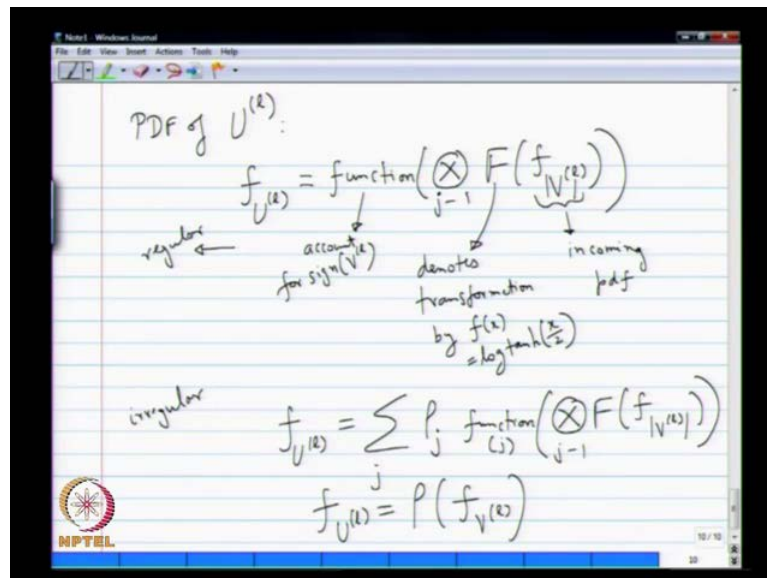 Note1 - Windows Journal
File Edit View Insert Actions Tools Help
PDF of U^(l):
f_U^(l) = function(⊗_{j-1} F(f_|V^(l)|))
regular ← account for sign(V^(l))
denotes transformation by f(x) = log tanh(x/2)
incoming pdf
irregular
f_U^(l) = Σ_j ρ_j function_(j)(⊗_{j-1} F(f_|V^(l)|))
f_U^(l) = ρ(f_V^(l))
NPTEL
10 / 10
10